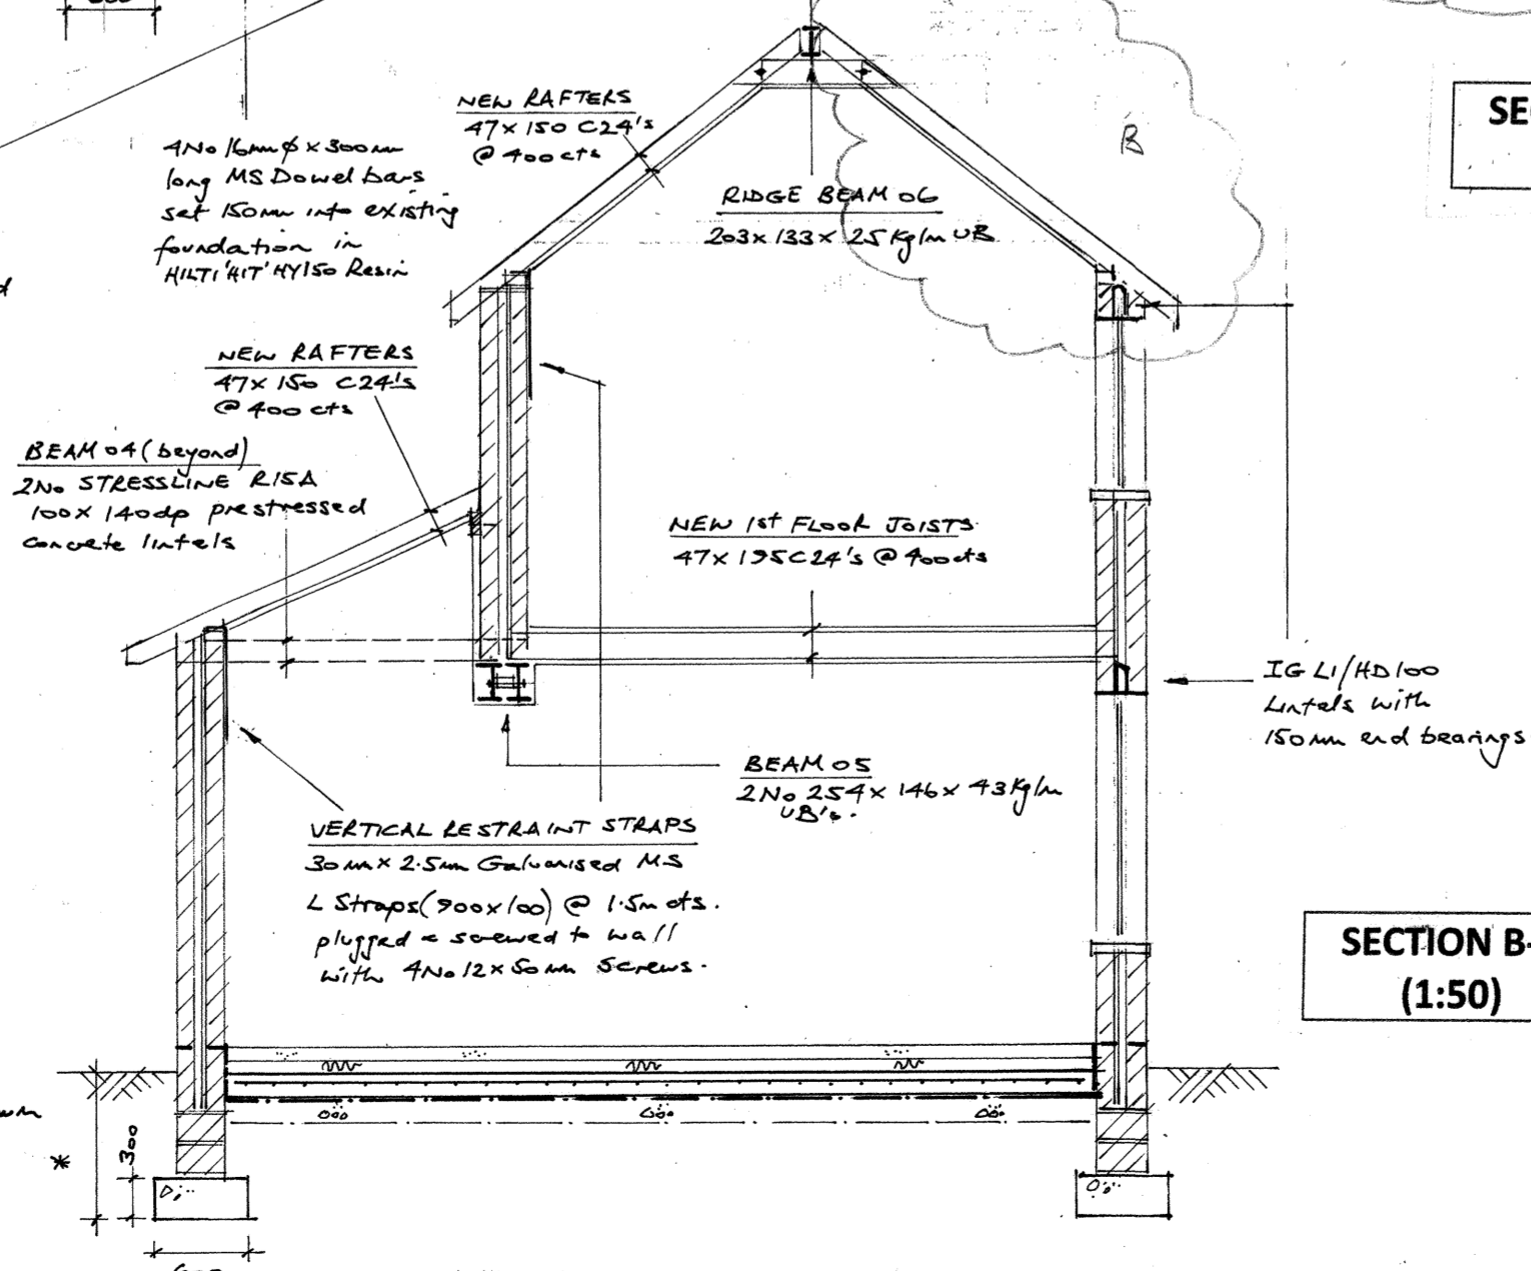 4No 16mm ϕ x 300mm
long MS Dowel bars
set 150mm into existing
foundation in
HILTI 'HIT' HY150 Resin
NEW RAFTERS
47 x 150 C24's
@ 400 cts
B
SE
RIDGE BEAM 06
203 x 133 x 25 Kg/m UB
NEW RAFTERS
47 x 150 C24's
@ 400 cts
BEAM 04 (beyond)
2No STRESSLINE R15A
100 x 140dp prestressed
concrete lintels
NEW 1st FLOOR JOISTS
47 x 195 C24's @ 400cts
IG L1/HD100
Lintels with
150mm end bearings
BEAM 05
2No 254 x 146 x 43 Kg/m
UB's.
VERTICAL RESTRAINT STRAPS
30mm x 2.5mm Galvanised MS
L Straps (900x100) @ 1.5m cts.
plugged & screwed to wall
with 4No 12 x 50mm Screws.
SECTION B-
(1:50)
*
300